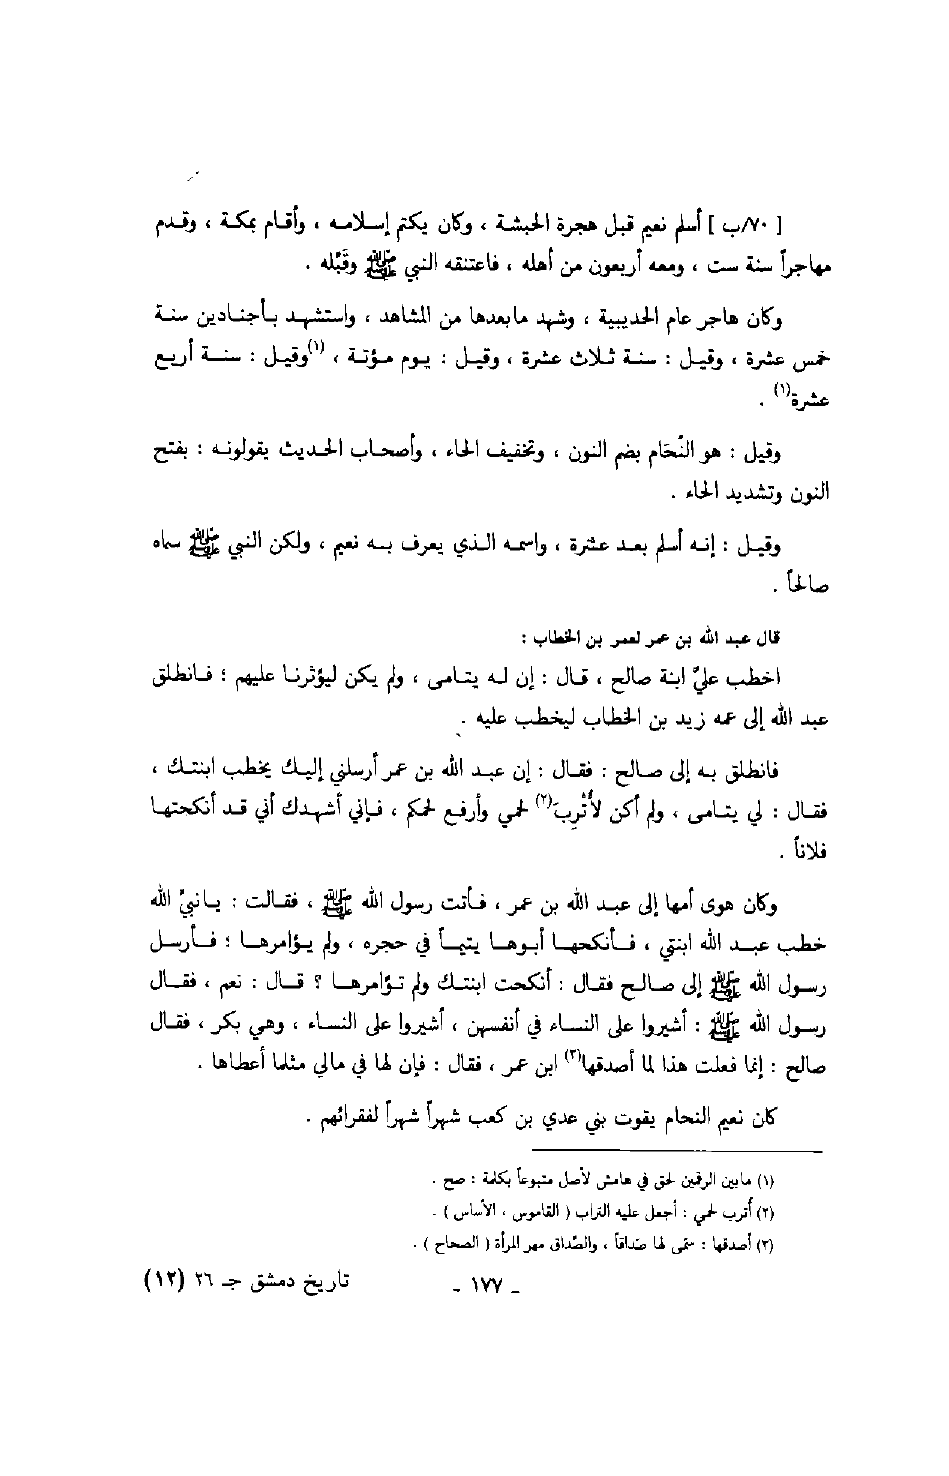 [ ٧٠/ب ] أسلم نعيم قبل هجرة الحبشة ، وكان يكتم إسلامه ، وأقام بمكة ، وقدم
مهاجراً سنة ست ، ومعه أربعون من أهله ، فاعتنقه النبي ﷺ وقَبَّله .
وكان هاجر عام الحديبية ، وشهد مابعدها من المشاهد ، واستشهد بأجنادين سنة
خمس عشرة ، وقيل : سنة ثلاث عشرة ، وقيل : يوم مؤتة ، (١)وقيل : سنة أربع
عشرة(١) .
وقيل : هو النُّحَام بضم النون ، وتخفيف الحاء ، وأصحاب الحديث يقولونه : بفتح
النون وتشديد الحاء .
وقيل : إنه أسلم بعد عشرة ، واسمه الذي يعرف به نعيم ، ولكن النبي ﷺ سماه
صالحاً .
قال عبد الله بن عمر لعمر بن الخطاب :
اخطب عليّ ابنة صالح ، قال : إن له يتامى ، ولم يكن ليؤثرنا عليهم ؛ فانطلق
عبد الله إلى عمه زيد بن الخطاب ليخطب عليه .
فانطلق به إلى صالح : فقال : إن عبد الله بن عمر أرسلني إليك يخطب ابنتك ،
فقال : لي يتامى ، ولم أكن لأُتْرِبَ(٢) لحمي وأرفع لحمكم ، فإني أشهدك أني قد أنكحتها
فلاناً .
وكان هوى أمها إلى عبد الله بن عمر ، فأتت رسول الله ﷺ ، فقالت : يا نبيَّ الله
خطب عبد الله ابنتي ، فأنكحها أبوها يتيماً في حجره ، ولم يؤامرها ؛ فأرسل
رسول الله ﷺ إلى صالح فقال : أنكحت ابنتك ولم تؤامرها ؟ قال : نعم ، فقال
رسول الله ﷺ : أشيروا على النساء في أنفسهن ، أشيروا على النساء ، وهي بكر ، فقال
صالح : إنما فعلت هذا لما أصدقها(٣) ابن عمر ، فقال : فإن لها في مالي مثلما أعطاها .
كان نعيم النحام يقوت بني عدي بن كعب شهراً شهراً لفقرائهم .
(١) مابين الرقمين لحق في هامش لأصل متبوعاً بكلمة : صح .
(٢) أُترب لحمي : أجعل عليه التراب ( القاموس ، الأساس ) .
(٣) أصدقها : سمّى لها صَداقاً ، والصَّداق مهر المرأة ( الصحاح ) .
- ١٧٧ -
تاريخ دمشق جـ ٢٦ (١٢)